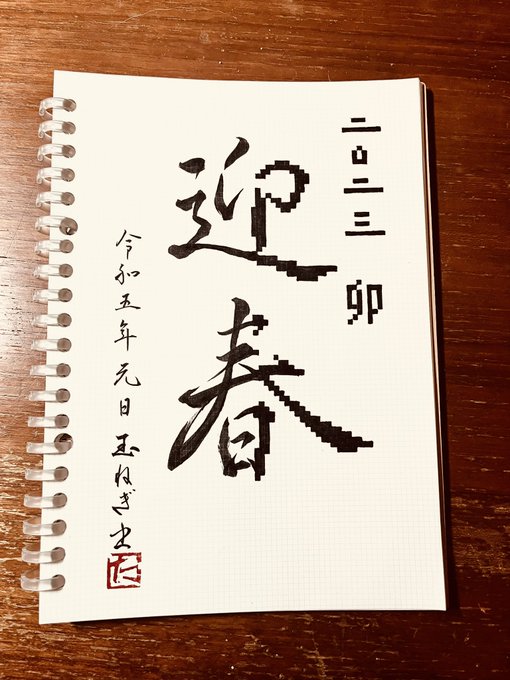 二〇二三 卯
迎春
令和五年 元日 玉ねぎ書